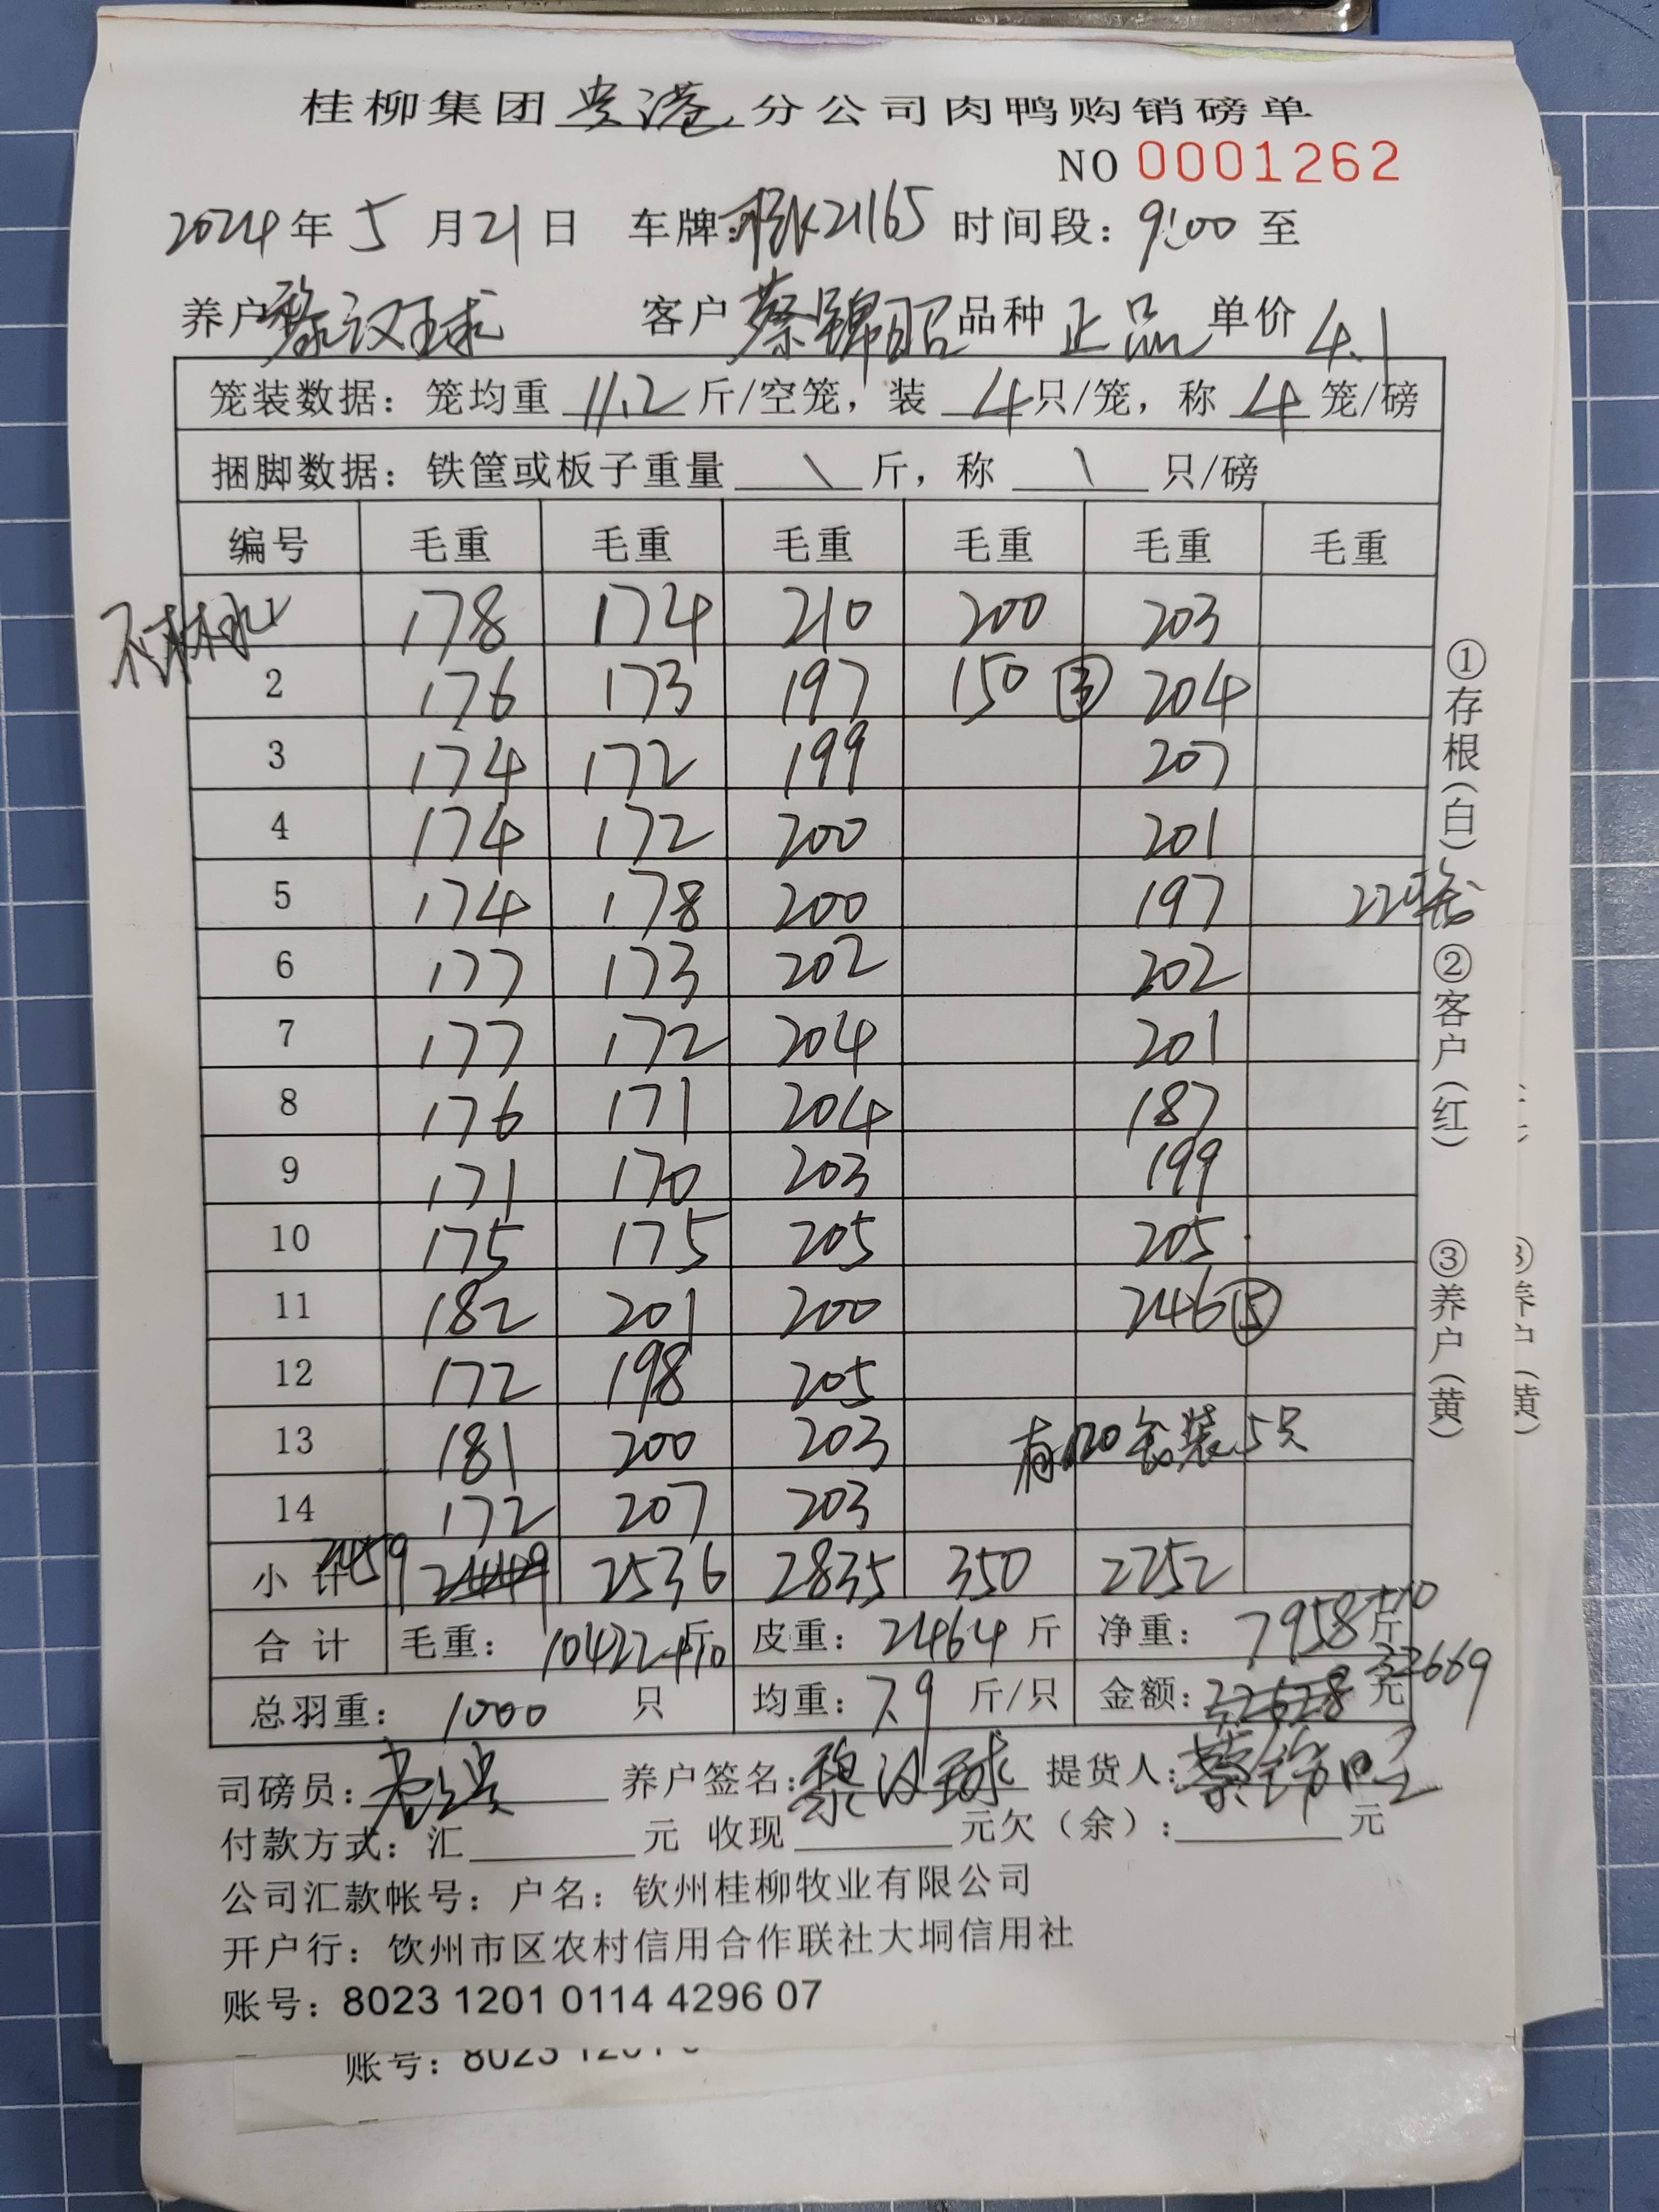 桂柳集团贵港分公司肉鸭购销磅单
NO 0001262
2024年5月21日 车牌:21165 时间段:9:00至
养户黎汉球 客户蔡锦昭品种正品单价4.1
笼装数据:笼均重11.2斤/空笼,装4只/笼,称4笼/磅
捆脚数据:铁筐或板子重量\斤,称\只/磅
编号 毛重 毛重 毛重 毛重 毛重 毛重
1 178 174 210 200 203
2 176 173 197 150 ③ 204
3 174 172 199 207
4 174 172 200 201
5 174 178 200 197 220
6 177 173 202 202
7 177 172 204 201
8 176 171 204 187
9 171 170 203 199
10 175 175 205 205
11 182 201 200 246 ⑤
12 172 198 205
13 181 200 203 有120笼装5只
14 172 207 203
小计 2459 2449 2536 2835 350 2252
合计 毛重:10422+10斤 皮重:2464斤 净重:7958+10斤
总羽重:1000只 均重:7.9斤/只 金额:32628元 32669
司磅员: 养户签名:黎汉球 提货人:蔡锦昭
付款方式:汇 元 收现 元欠(余): 元
公司汇款帐号:户名:钦州桂柳牧业有限公司
开户行:饮州市区农村信用合作联社大垌信用社
账号:8023 1201 0114 4296 07
①存根(白)
②客户(红)
③养户(黄)
③养户(黄)
账号:8023